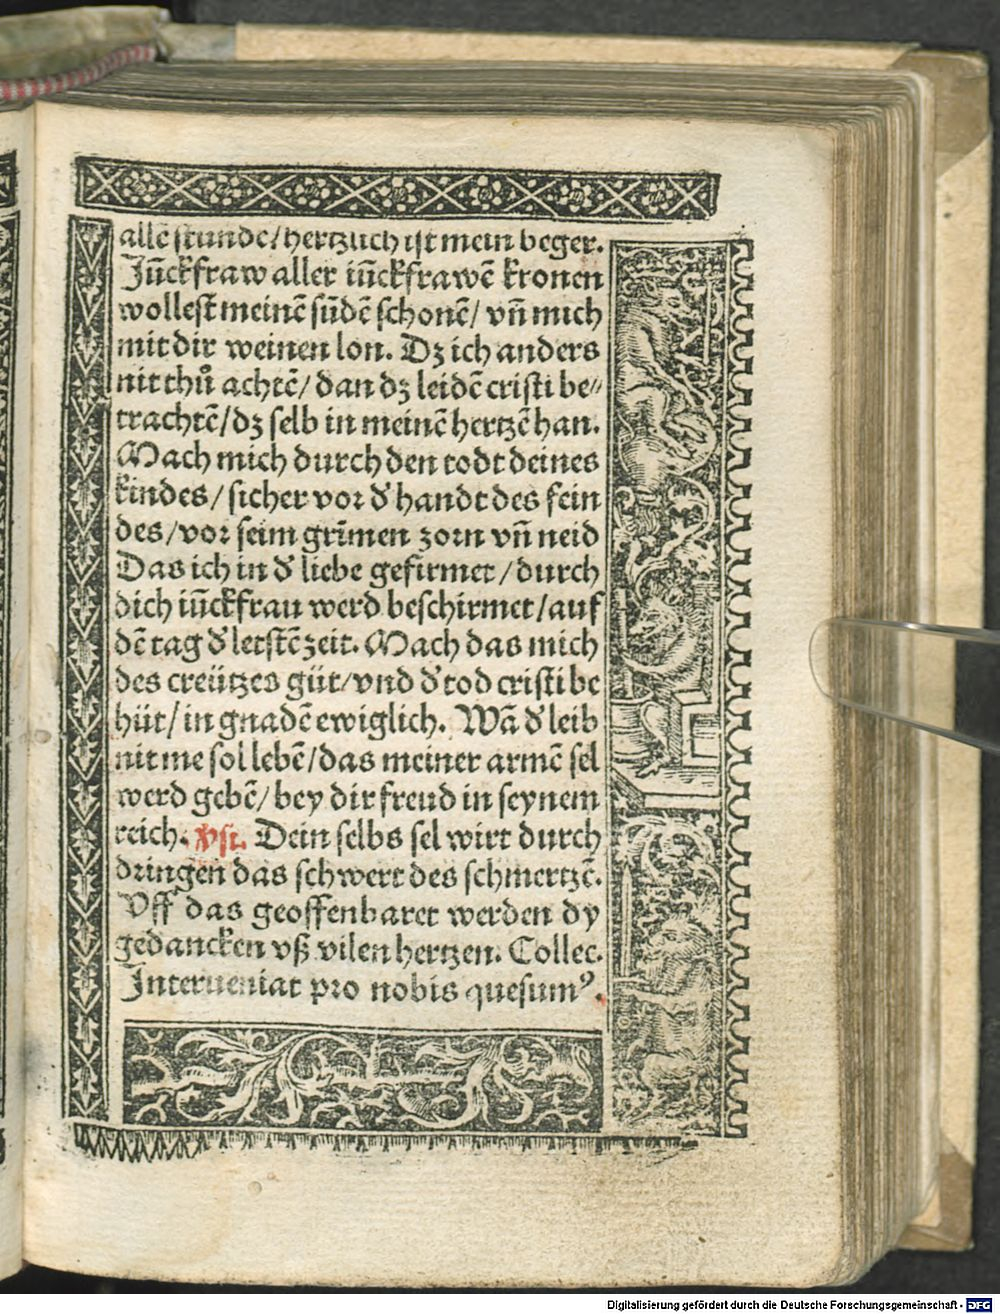 allē stunde/hertzlich ist mein beger.
Jūckfraw aller iūckfrawē kronen
wollest meinē sūdē schonē/ vñ mich
mit dir weinen lon. Dz ich anders
nit thů achtē/dan dz leidē cristi be⸗
trachtē/dz selb in meinē hertzē han.
Mach mich durch den todt deines
kindes/sicher vor d' handt des fein
des/vor seim grīmen zorn vñ neid
Das ich in d' liebe gefirmet/durch
dich iūckfrau werd beschirmet/auf
dē tag d' letstē zeit. Mach das mich
des creützes güt/vnd d' tod cristi be
hüt/in gnadē ewiglich. Wā d' leib
nit me sol lebē/das meiner armē sel
werd gebē/bey dir freud in seynem
reich. Vsi. Dein selbs sel wirt durch
dringen das schwert des schmertzē.
Vff das geoffenbaret werden dy
gedancken vß vilen hertzen. Collec.
Interueniat pro nobis quesumꝰ.
Digitalisierung gefördert durch die Deutsche Forschungsgemeinschaft - DFG